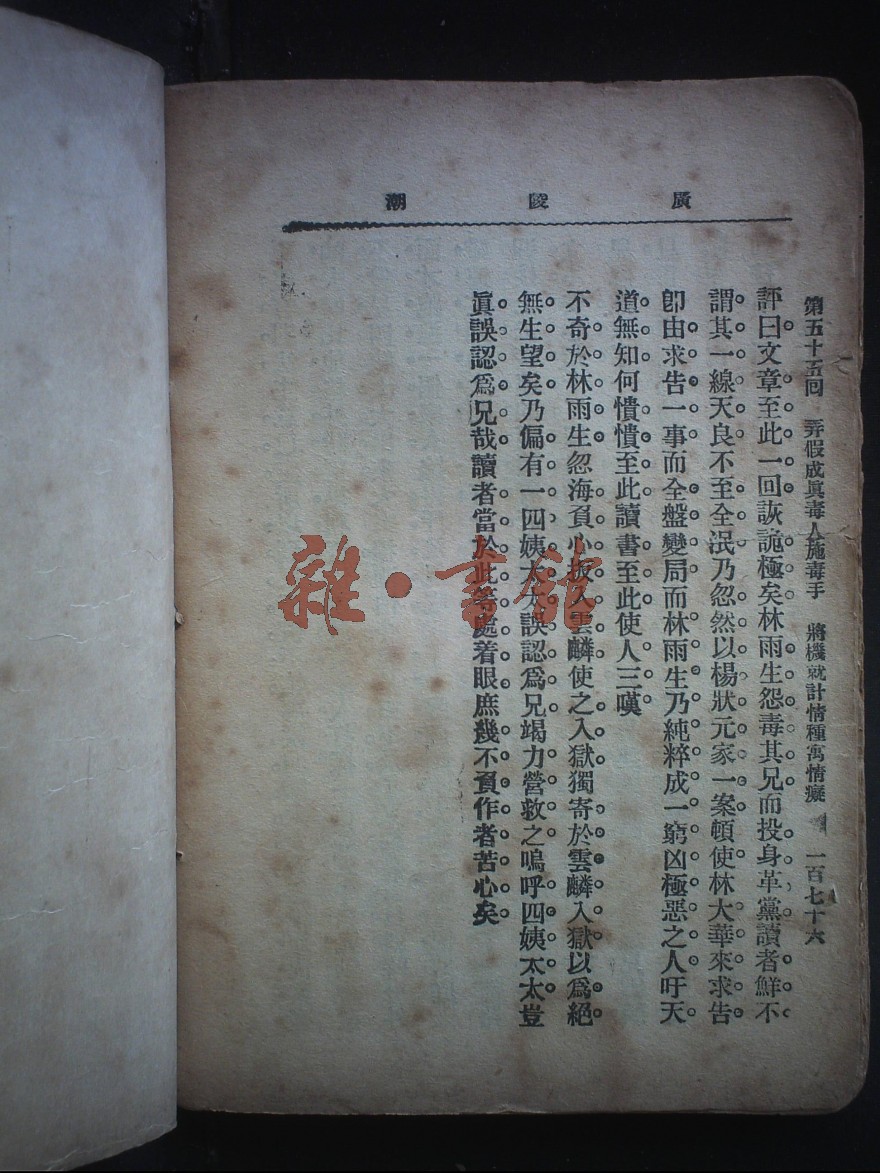 廣陵潮
第五十五回 弄假成眞毒人施毒手 將機就計情種寓情癡 一百七十六
評曰文章至此一回詼詭極矣林雨生怨毒其兄而投身革黨讀者鮮不
謂其一線天良不至全泯乃忽然以楊狀元家一案頓使林大華來求告
卽由求告一事而全盤變局而林雨生乃純粹成一窮凶極惡之人吁天
道無知何憒憒至此讀書至此使人三嘆
不奇於林雨生忽海負心扳入雲麟使之入獄獨寄於雲麟入獄以爲絕
無生望矣乃偏有一四姨太太誤認爲兄竭力營救之嗚呼四姨太太豈
眞誤認爲兄哉讀者當於此等處着眼庶幾不負作者苦心矣
雜·書館